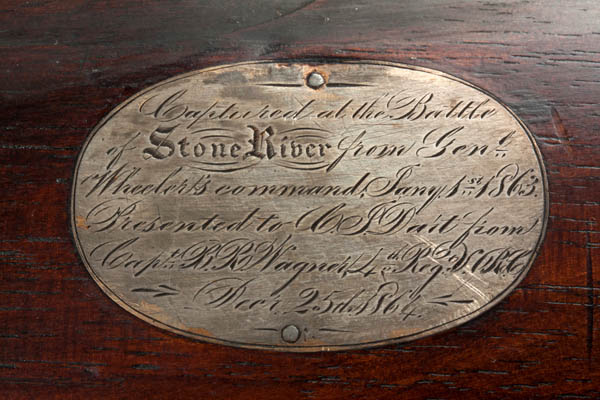 Captured at the Battle
of Stone River from Genl.
Wheeler's command, Jany. 1st. 1863.
Presented to C. J. from
Capt. B. R. Wagner, 4th Reg.
Decr. 25th 1864.